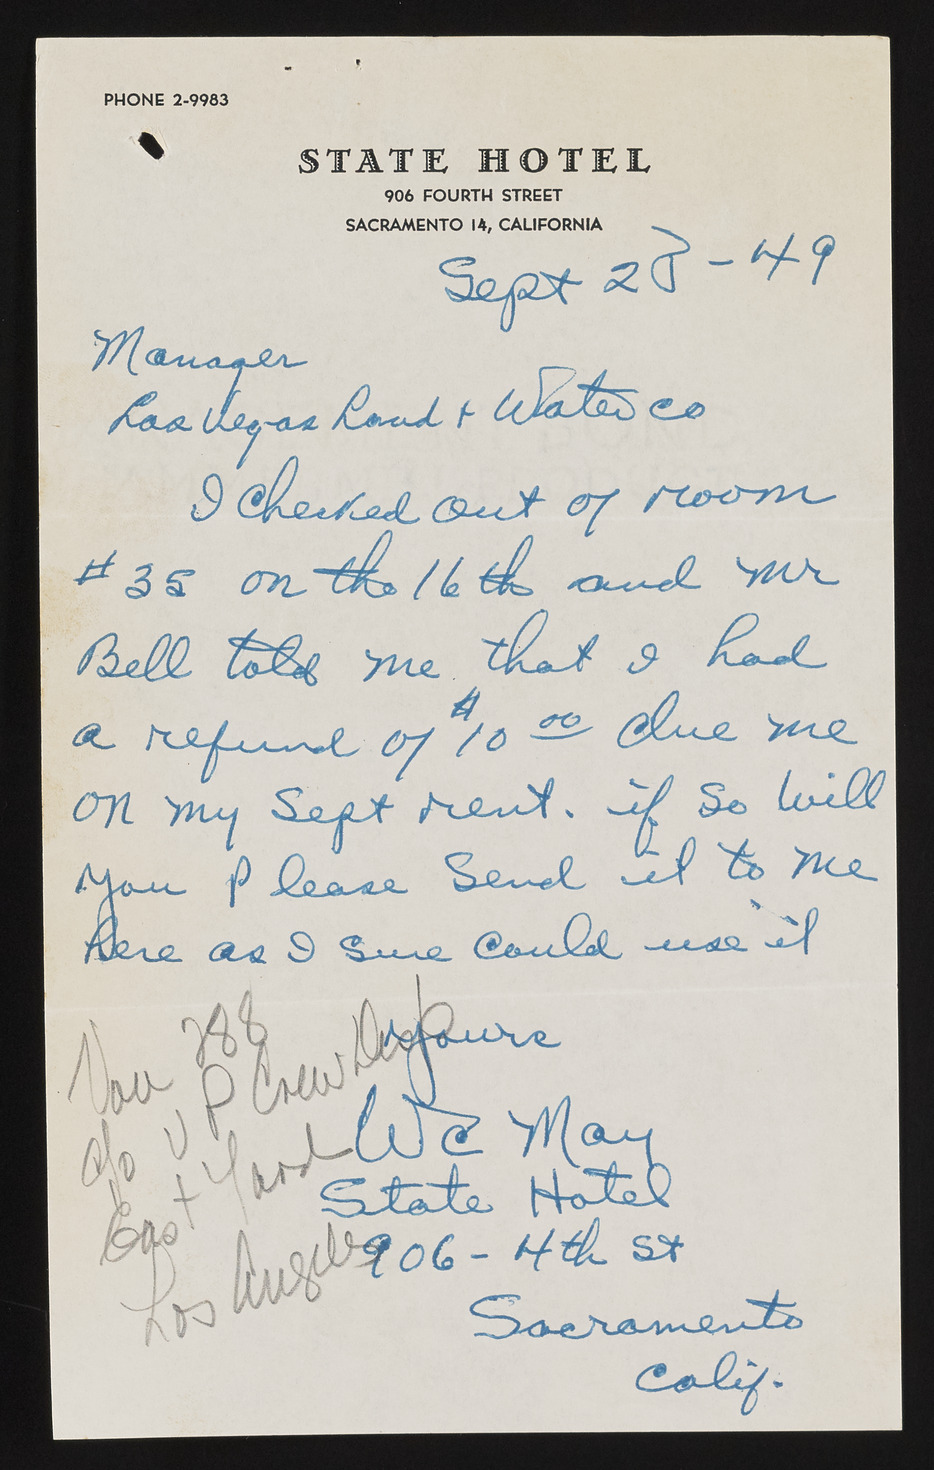 PHONE 2-9983
STATE HOTEL
906 FOURTH STREET
SACRAMENTO 14, CALIFORNIA
Sept 23 - 49
Manager
Las Vegas Land + Water Co
I checked out of room
# 35 on the 16th and Mr
Bell told me that I had
a refund of $10 00 due me
on my Sept rent. if so will
you please send it to me
here as I sure could use it
Yours
WC May
State Hotel
906 - 4th St
Sacramento
Calif.
Vou 288
c/o U P Crew Disp
East Yard
Los Angeles